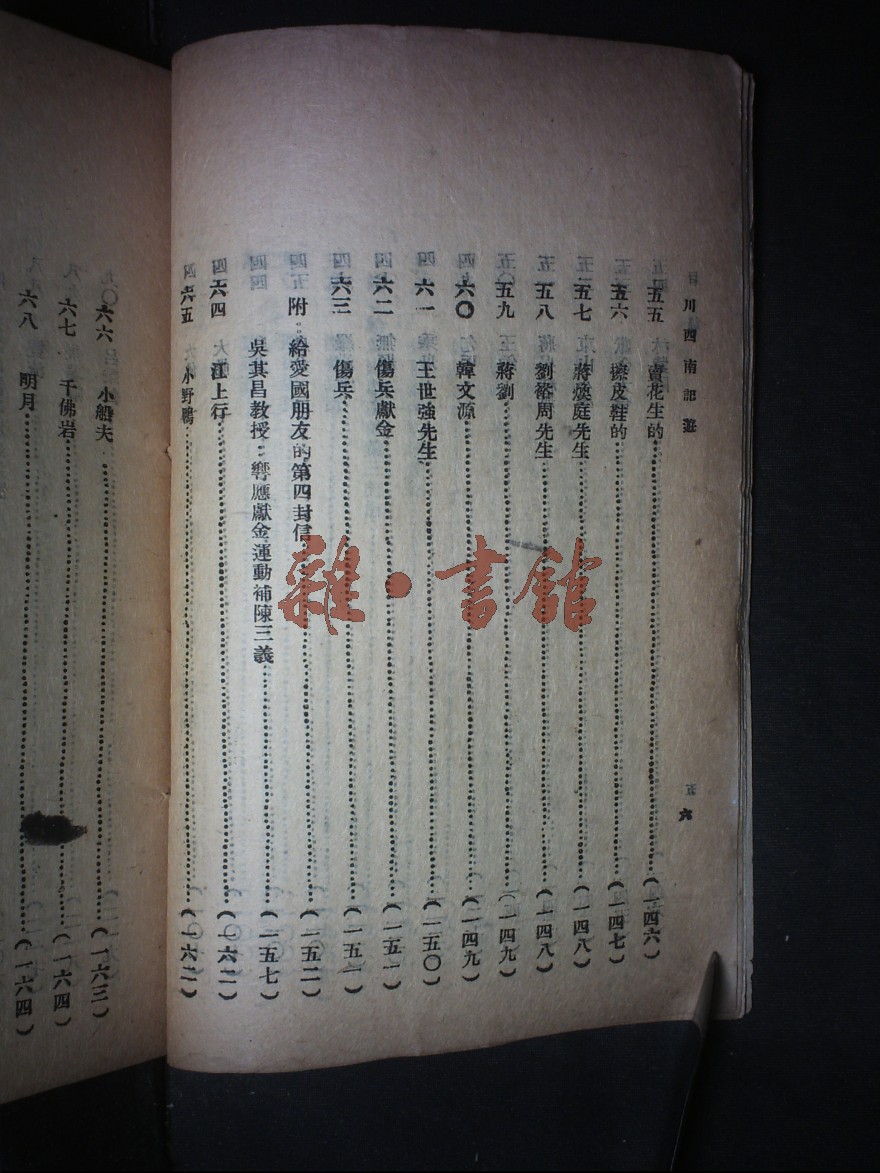 川西南記遊
六
五五　賣花生的……（一四六）
五六　擦皮鞋的……（一四七）
五七　蔣煥庭先生……（一四八）
五八　劉裕周先生……（一四八）
五九　蔣劉……（一四九）
六〇　韓文源……（一四九）
六一　王世強先生……（一五〇）
六二　傷兵獻金……（一五一）
六三　傷兵……（一五一）
附：給愛國朋友的第四封信……（一五二）
吳其昌教授：響應獻金運動補陳三義……（一五七）
六四　江上行……（一六二）
六五　小野鴨……（一六二）
六六　小船夫……（一六三）
六七　千佛岩……（一六四）
六八　明月……（一六四）
雜·書館